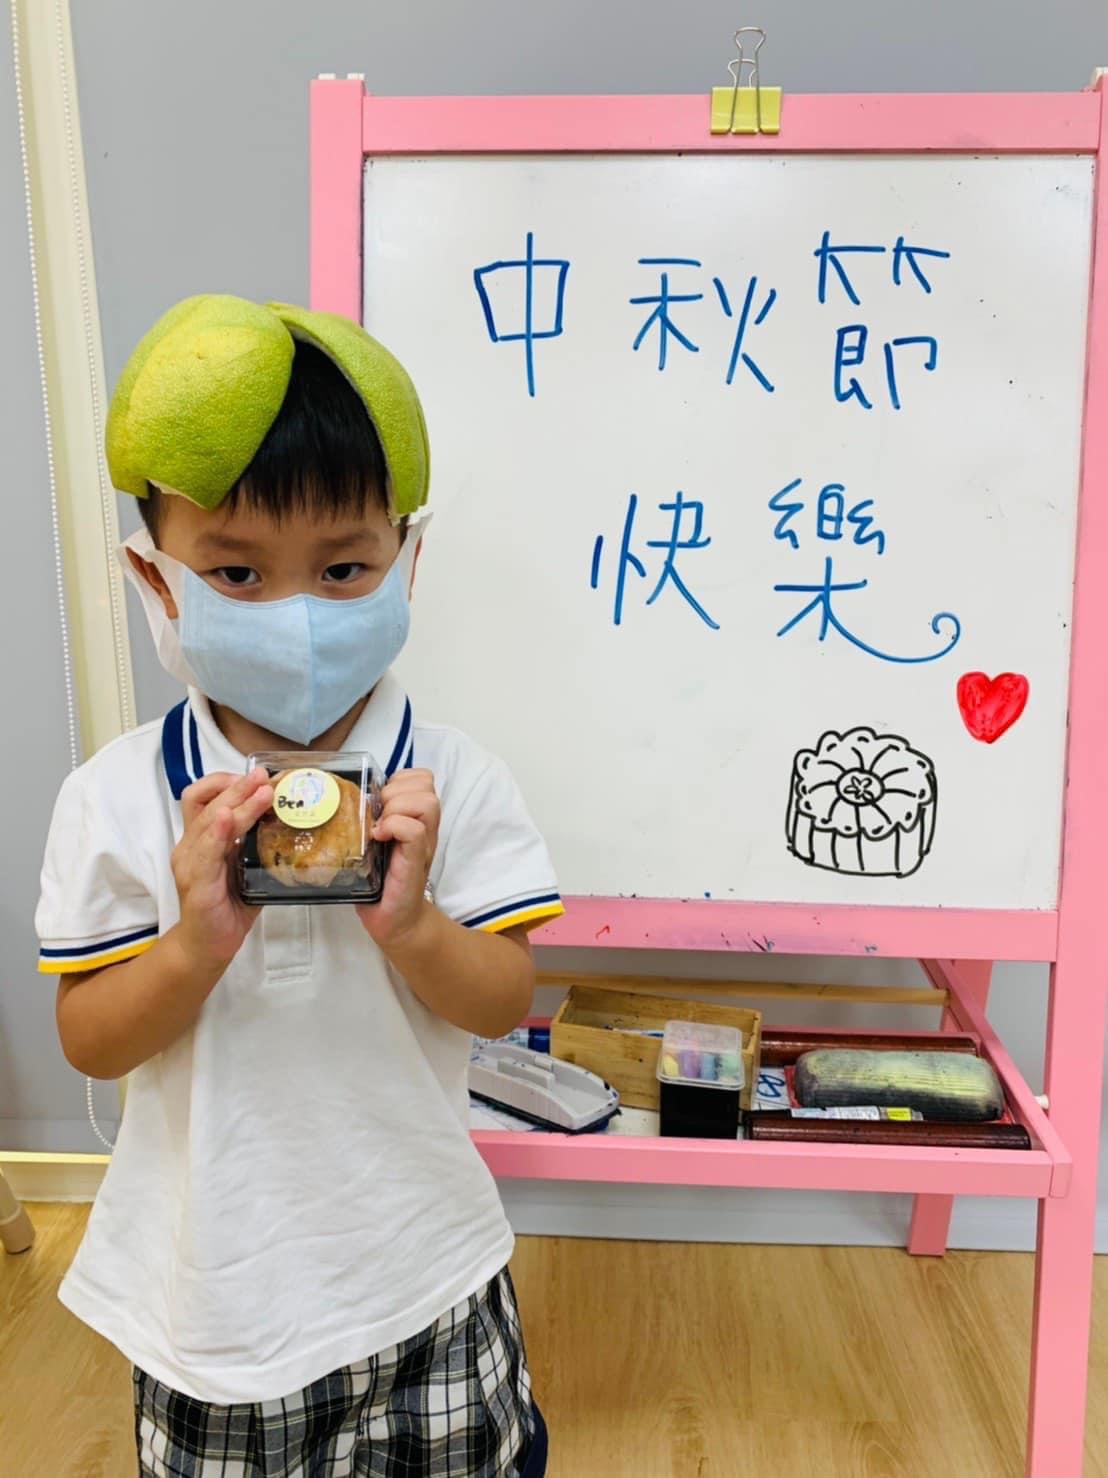 中秋節
快樂
Ben